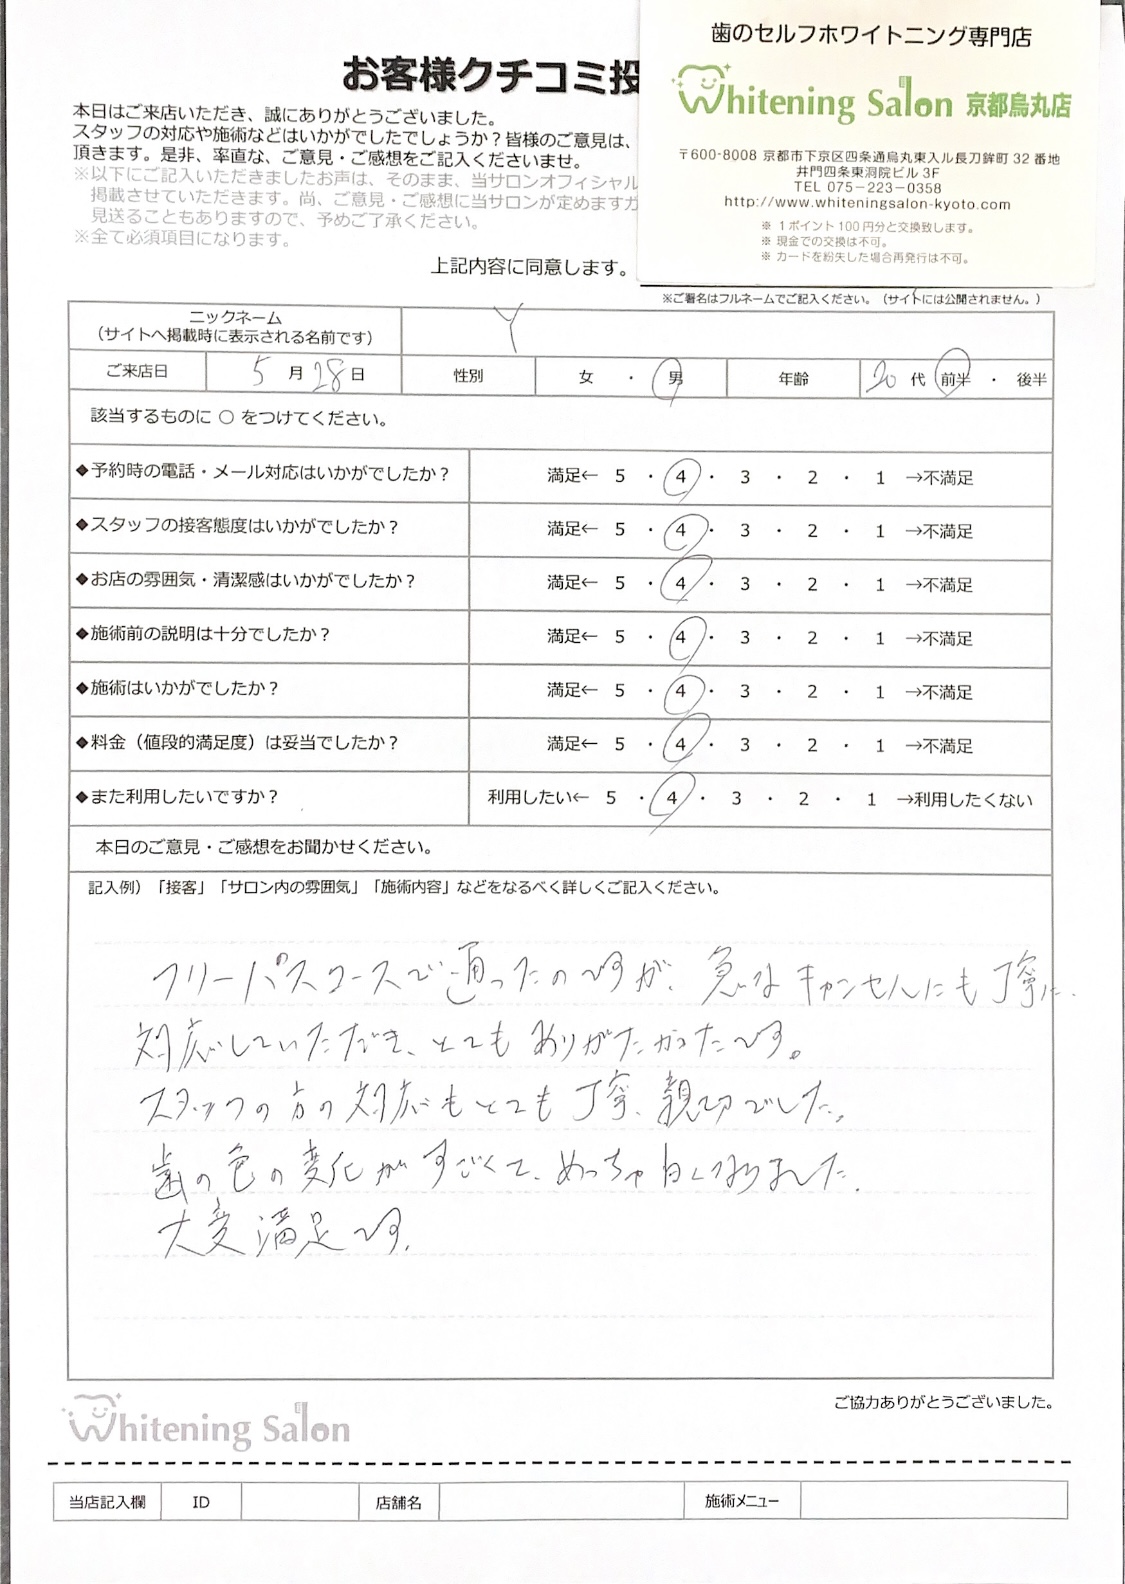 歯のセルフホワイトニング専門店
Whitening Salon 京都烏丸店
〒600-8008 京都市下京区四条通烏丸東入ル長刀鉾町 32 番地
井門四条東洞院ビル 3F
TEL 075-223-0358
http://www.whiteningsalon-kyoto.com
※ 1ポイント100円分と交換致します。
※ 現金での交換は不可。
※ カードを紛失した場合再発行は不可。
お客様クチコミ投
本日はご来店いただき、誠にありがとうございました。
スタッフの対応や施術などはいかがでしたでしょうか?皆様のご意見は、
頂きます。是非、率直な、ご意見・ご感想をご記入くださいませ。
※以下にご記入いただきましたお声は、そのまま、当サロンオフィシャル
掲載させていただきます。尚、ご意見・ご感想に当サロンが定めますガ
見送ることもありますので、予めご了承ください。
※全て必須項目になります。
上記内容に同意します。
※ご署名はフルネームでご記入ください。(サイトには公開されません。)
ニックネーム Y
(サイトへ掲載時に表示される名前です)
ご来店日 5 月 28 日 性別 女 ・ 男 年齢 20 代 前半 ・ 後半
該当するものに ○ をつけてください。
◆予約時の電話・メール対応はいかがでしたか? 満足← 5 ・ 4 ・ 3 ・ 2 ・ 1 →不満足
◆スタッフの接客態度はいかがでしたか? 満足← 5 ・ 4 ・ 3 ・ 2 ・ 1 →不満足
◆お店の雰囲気・清潔感はいかがでしたか? 満足← 5 ・ 4 ・ 3 ・ 2 ・ 1 →不満足
◆施術前の説明は十分でしたか? 満足← 5 ・ 4 ・ 3 ・ 2 ・ 1 →不満足
◆施術はいかがでしたか? 満足← 5 ・ 4 ・ 3 ・ 2 ・ 1 →不満足
◆料金(値段的満足度)は妥当でしたか? 満足← 5 ・ 4 ・ 3 ・ 2 ・ 1 →不満足
◆また利用したいですか? 利用したい← 5 ・ 4 ・ 3 ・ 2 ・ 1 →利用したくない
本日のご意見・ご感想をお聞かせください。
記入例)「接客」「サロン内の雰囲気」「施術内容」などをなるべく詳しくご記入ください。
フリーパスコースで通ったのですが、急なキャンセルにも丁寧に
対応していただき、とてもありがたかったです。
スタッフの方の対応もとても丁寧、親切でした。
歯の色の変化がすごくて、めっちゃ白くなりました。
大変満足です。
ご協力ありがとうございました。
Whitening Salon
当店記入欄 ID 店舗名 施術メニュー